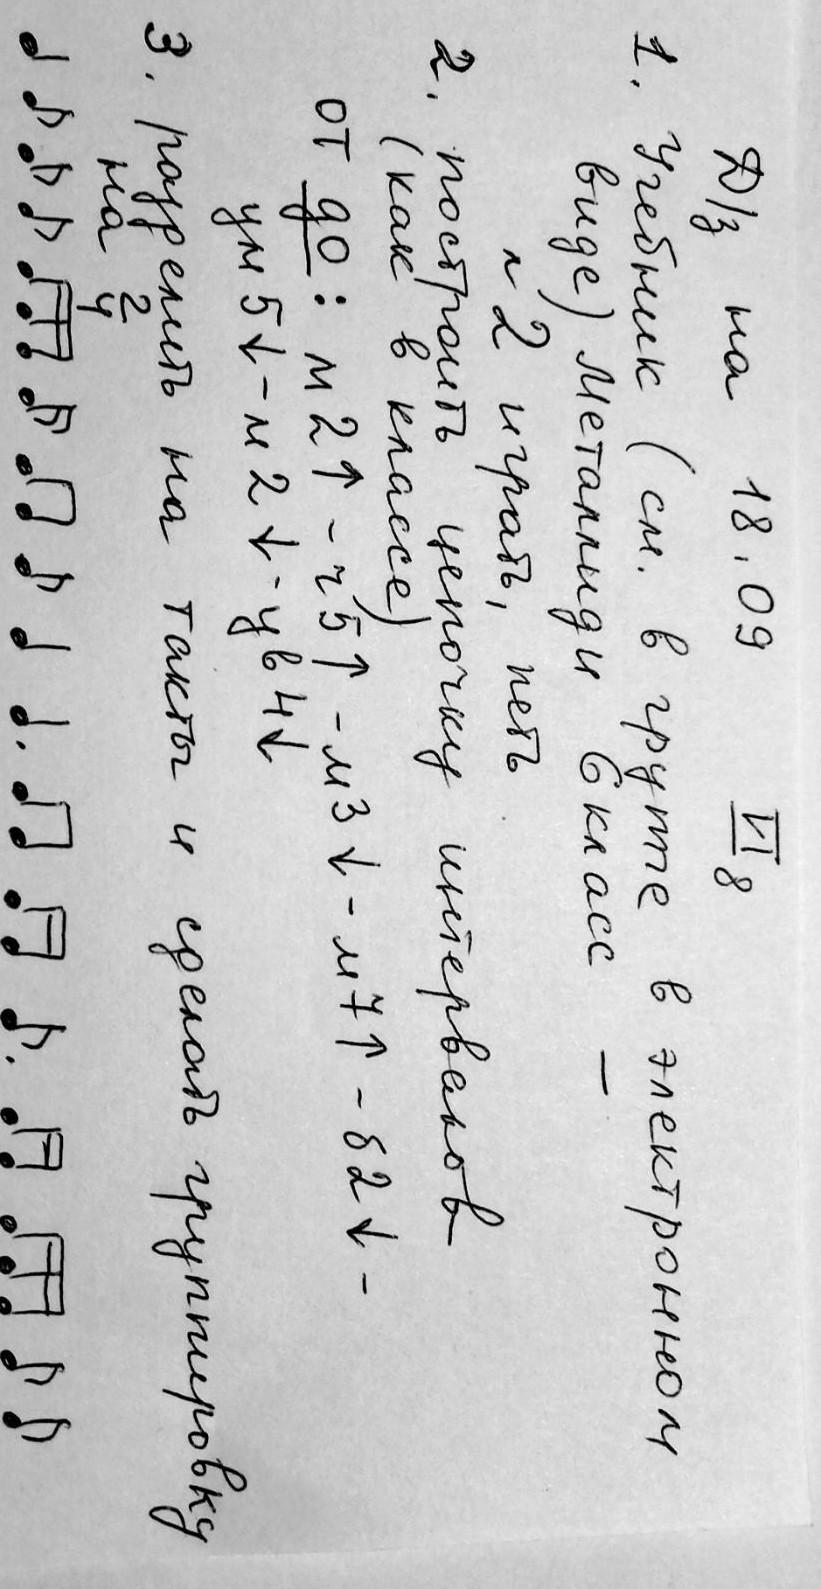 Д/з на 18.09 VI 8
1. Учебник (см. в группе в электронном
виде) Металлиди 6 класс –
№ 2 играть, петь
2. построить цепочку интервалов
(как в классе)
от до: м2↑ - ч5↑ - м3↓ - м7↑ - б2↓ -
ум5↓ - м2↓ - ув4↓
3. разделить на такты и сделать группировку
на 2/4